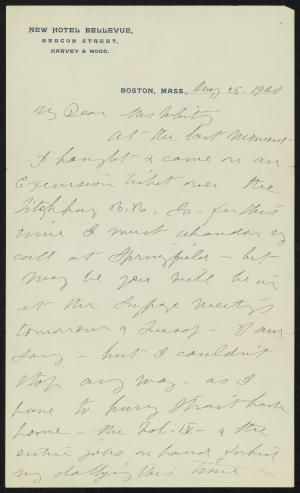 NEW HOTEL BELLEVUE,
BEACON STREET,
HARVEY & WOOD.
BOSTON, MASS., 26. 1900
My Dear Mrs
At the last moment
I thought to come on an
Excursion ticket over the
Fitchburg R.R. So - for this
time I must abandon my
call at Springfield - but
may be you will be in
at the Suffrage meetings
tomorrow & - I am
sorry - but I couldn't
stop any way - as I
have to hurry straight back
home - the Vol. IV - & the
entire jobs on hand forbid
my dallying this time -